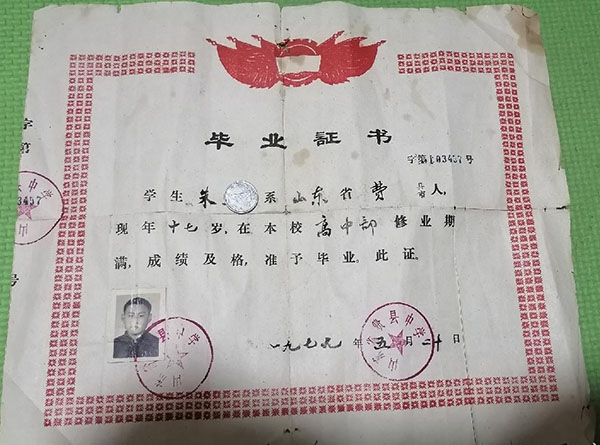 毕业证书
字第103457号
学生朱 系山东省费县市人,
现年十七岁,在本校高中部修业期
满,成绩及格,准予毕业。此证。
一九七九年五月二十日
字第
3457
号